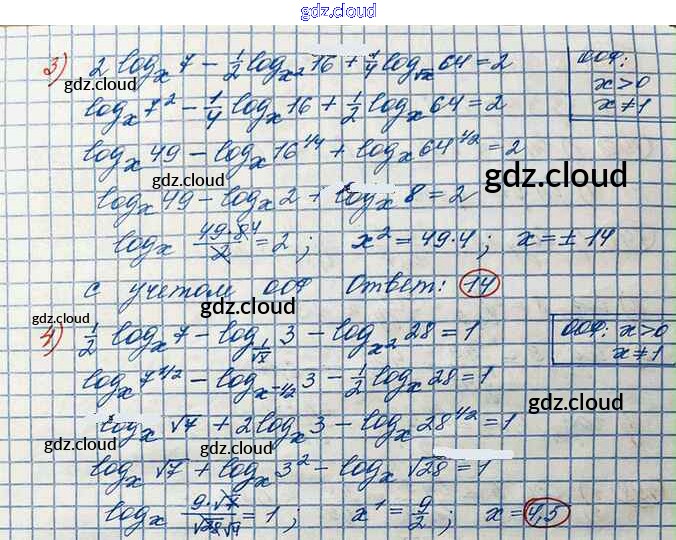 gdz.cloud
3) 2 log_x 7 − 1/2 log_{x²} 16 + 1/4 log_{√x} 64 = 2
ООФ:
x > 0
x ≠ 1
gdz.cloud
gdz.cloud
log_x 7² − 1/4 log_x 16 + 1/2 log_x 64 = 2
log_x 49 − log_x 16^{1/4} + log_x 64^{1/2} = 2
gdz.cloud
gdz.cloud
log_x 49 − log_x 2 + log_x 8 = 2
log_x (49·8̶ 4)/2̶ = 2; x² = 49·4; x = ± 14
с учетом ООФ Ответ: 14
gdz.cloud
gdz.cloud
4) 1/2 log_x 7 − log_{1/√x} 3 − log_{x²} 28 = 1
ООФ: x > 0
x ≠ 1
gdz.cloud
log_x 7^{1/2} − log_{x^{-1/2}} 3 − 1/2 log_x 28 = 1
gdz.cloud
log_x √7 + 2 log_x 3 − log_x 28^{1/2} = 1
gdz.cloud
gdz.cloud
log_x √7 + log_x 3² − log_x √28 = 1
log_x (9·√7)/(√28 √4) = 1; x¹ = 9/2; x = 4,5